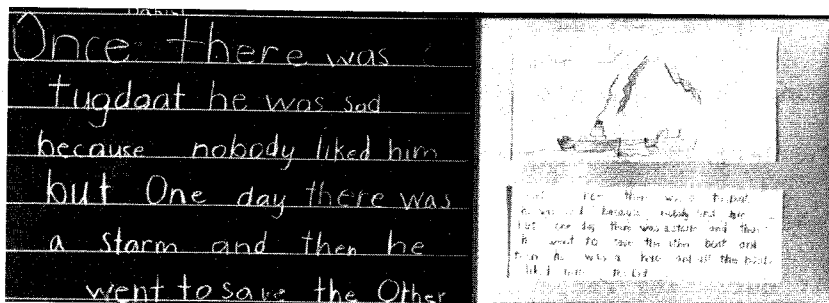 Once there was
tugdaat he was sad
because nobody liked him
but One day there was
a storm and then he
went to save the Other
there was a
he was sad because nobody liked him
but one day there was a storm and then
he went to save the other boat and
then he was a hero and all the boats
liked him